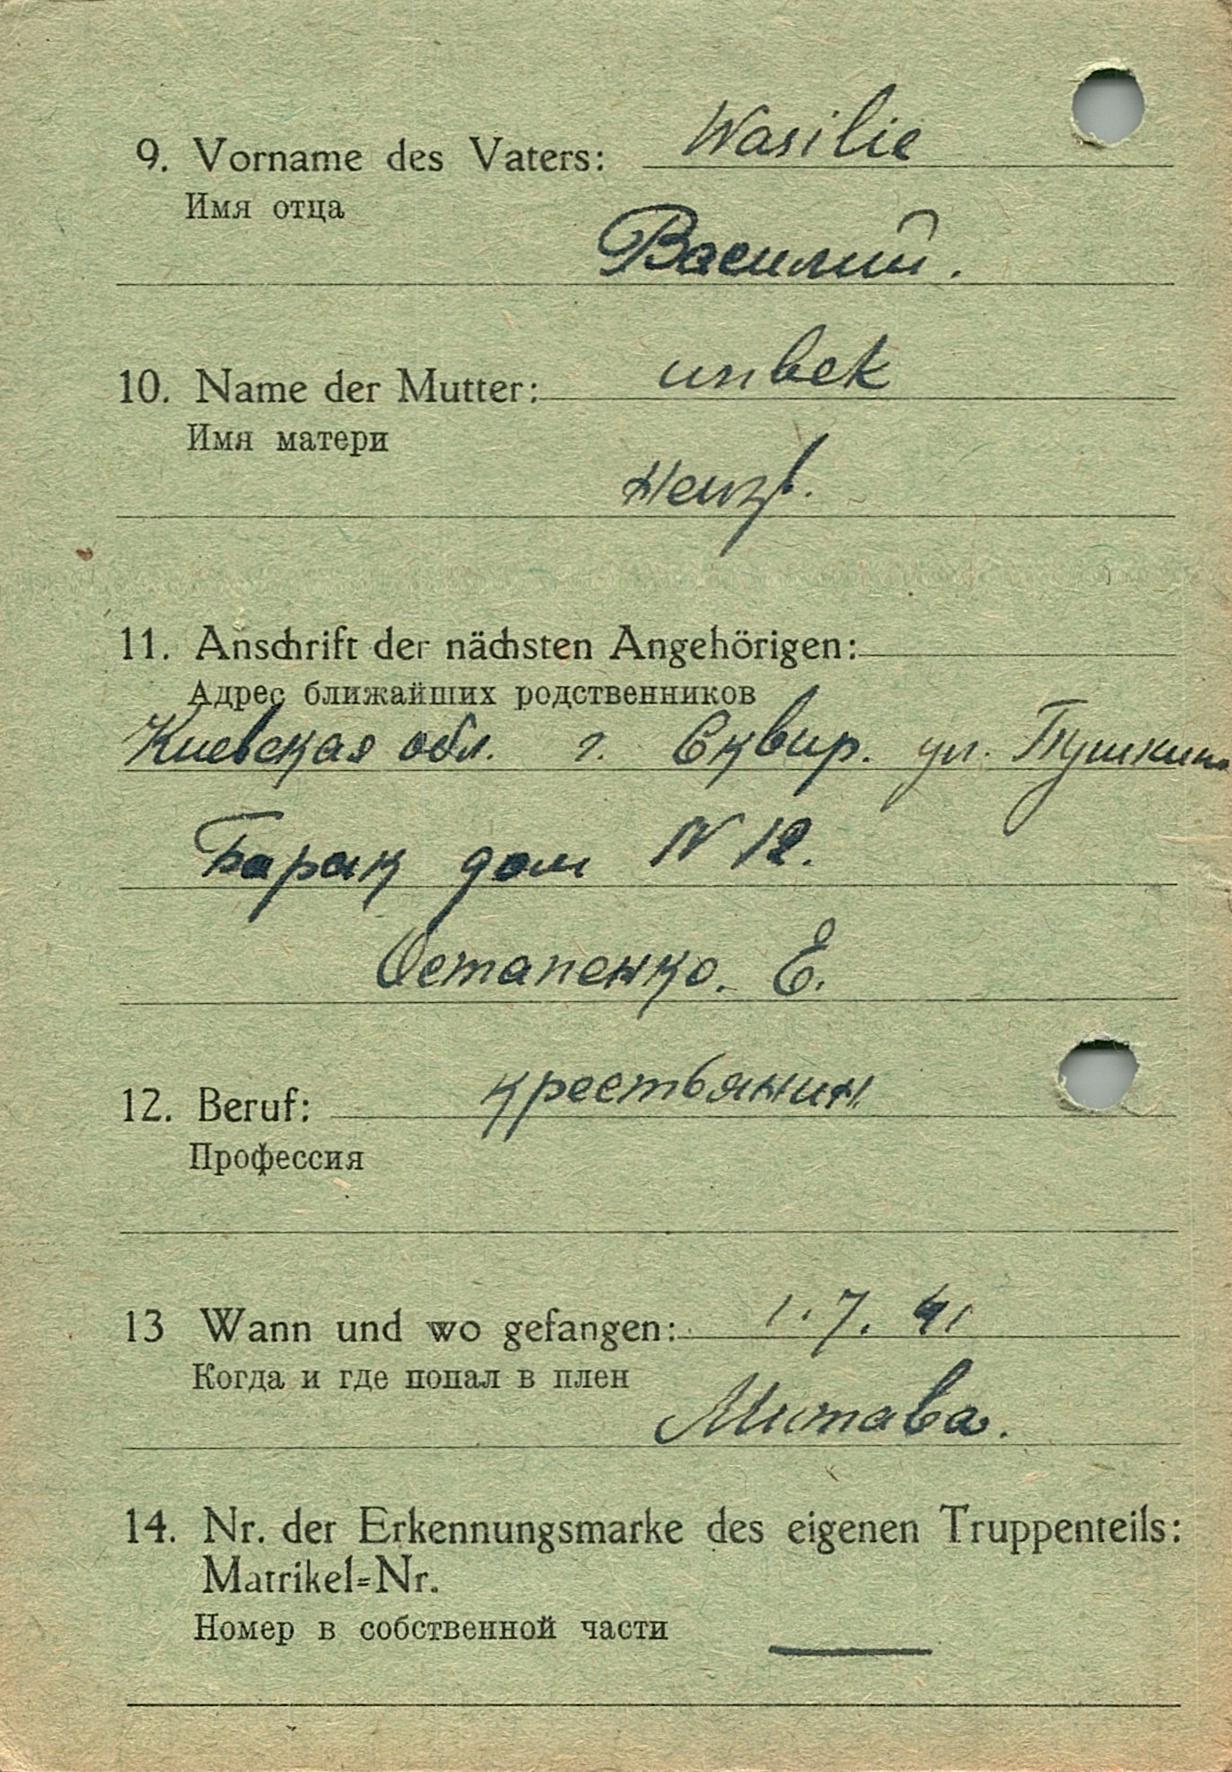 9. Vorname des Vaters: Wasilie
Имя отца
Василий.
10. Name der Mutter: unbek
Имя матери
Неизв.
11. Anschrift der nächsten Angehörigen:
Адрес ближайших родственников
Киевская обл. г. Сквир. ул. Пушкина
Барак дом N 12.
Остапенко. Е.
12. Beruf: крестьянин.
Профессия
13 Wann und wo gefangen: 1.7.41
Когда и где попал в плен
Митава.
14. Nr. der Erkennungsmarke des eigenen Truppenteils:
Matrikel-Nr.
Номер в собственной части